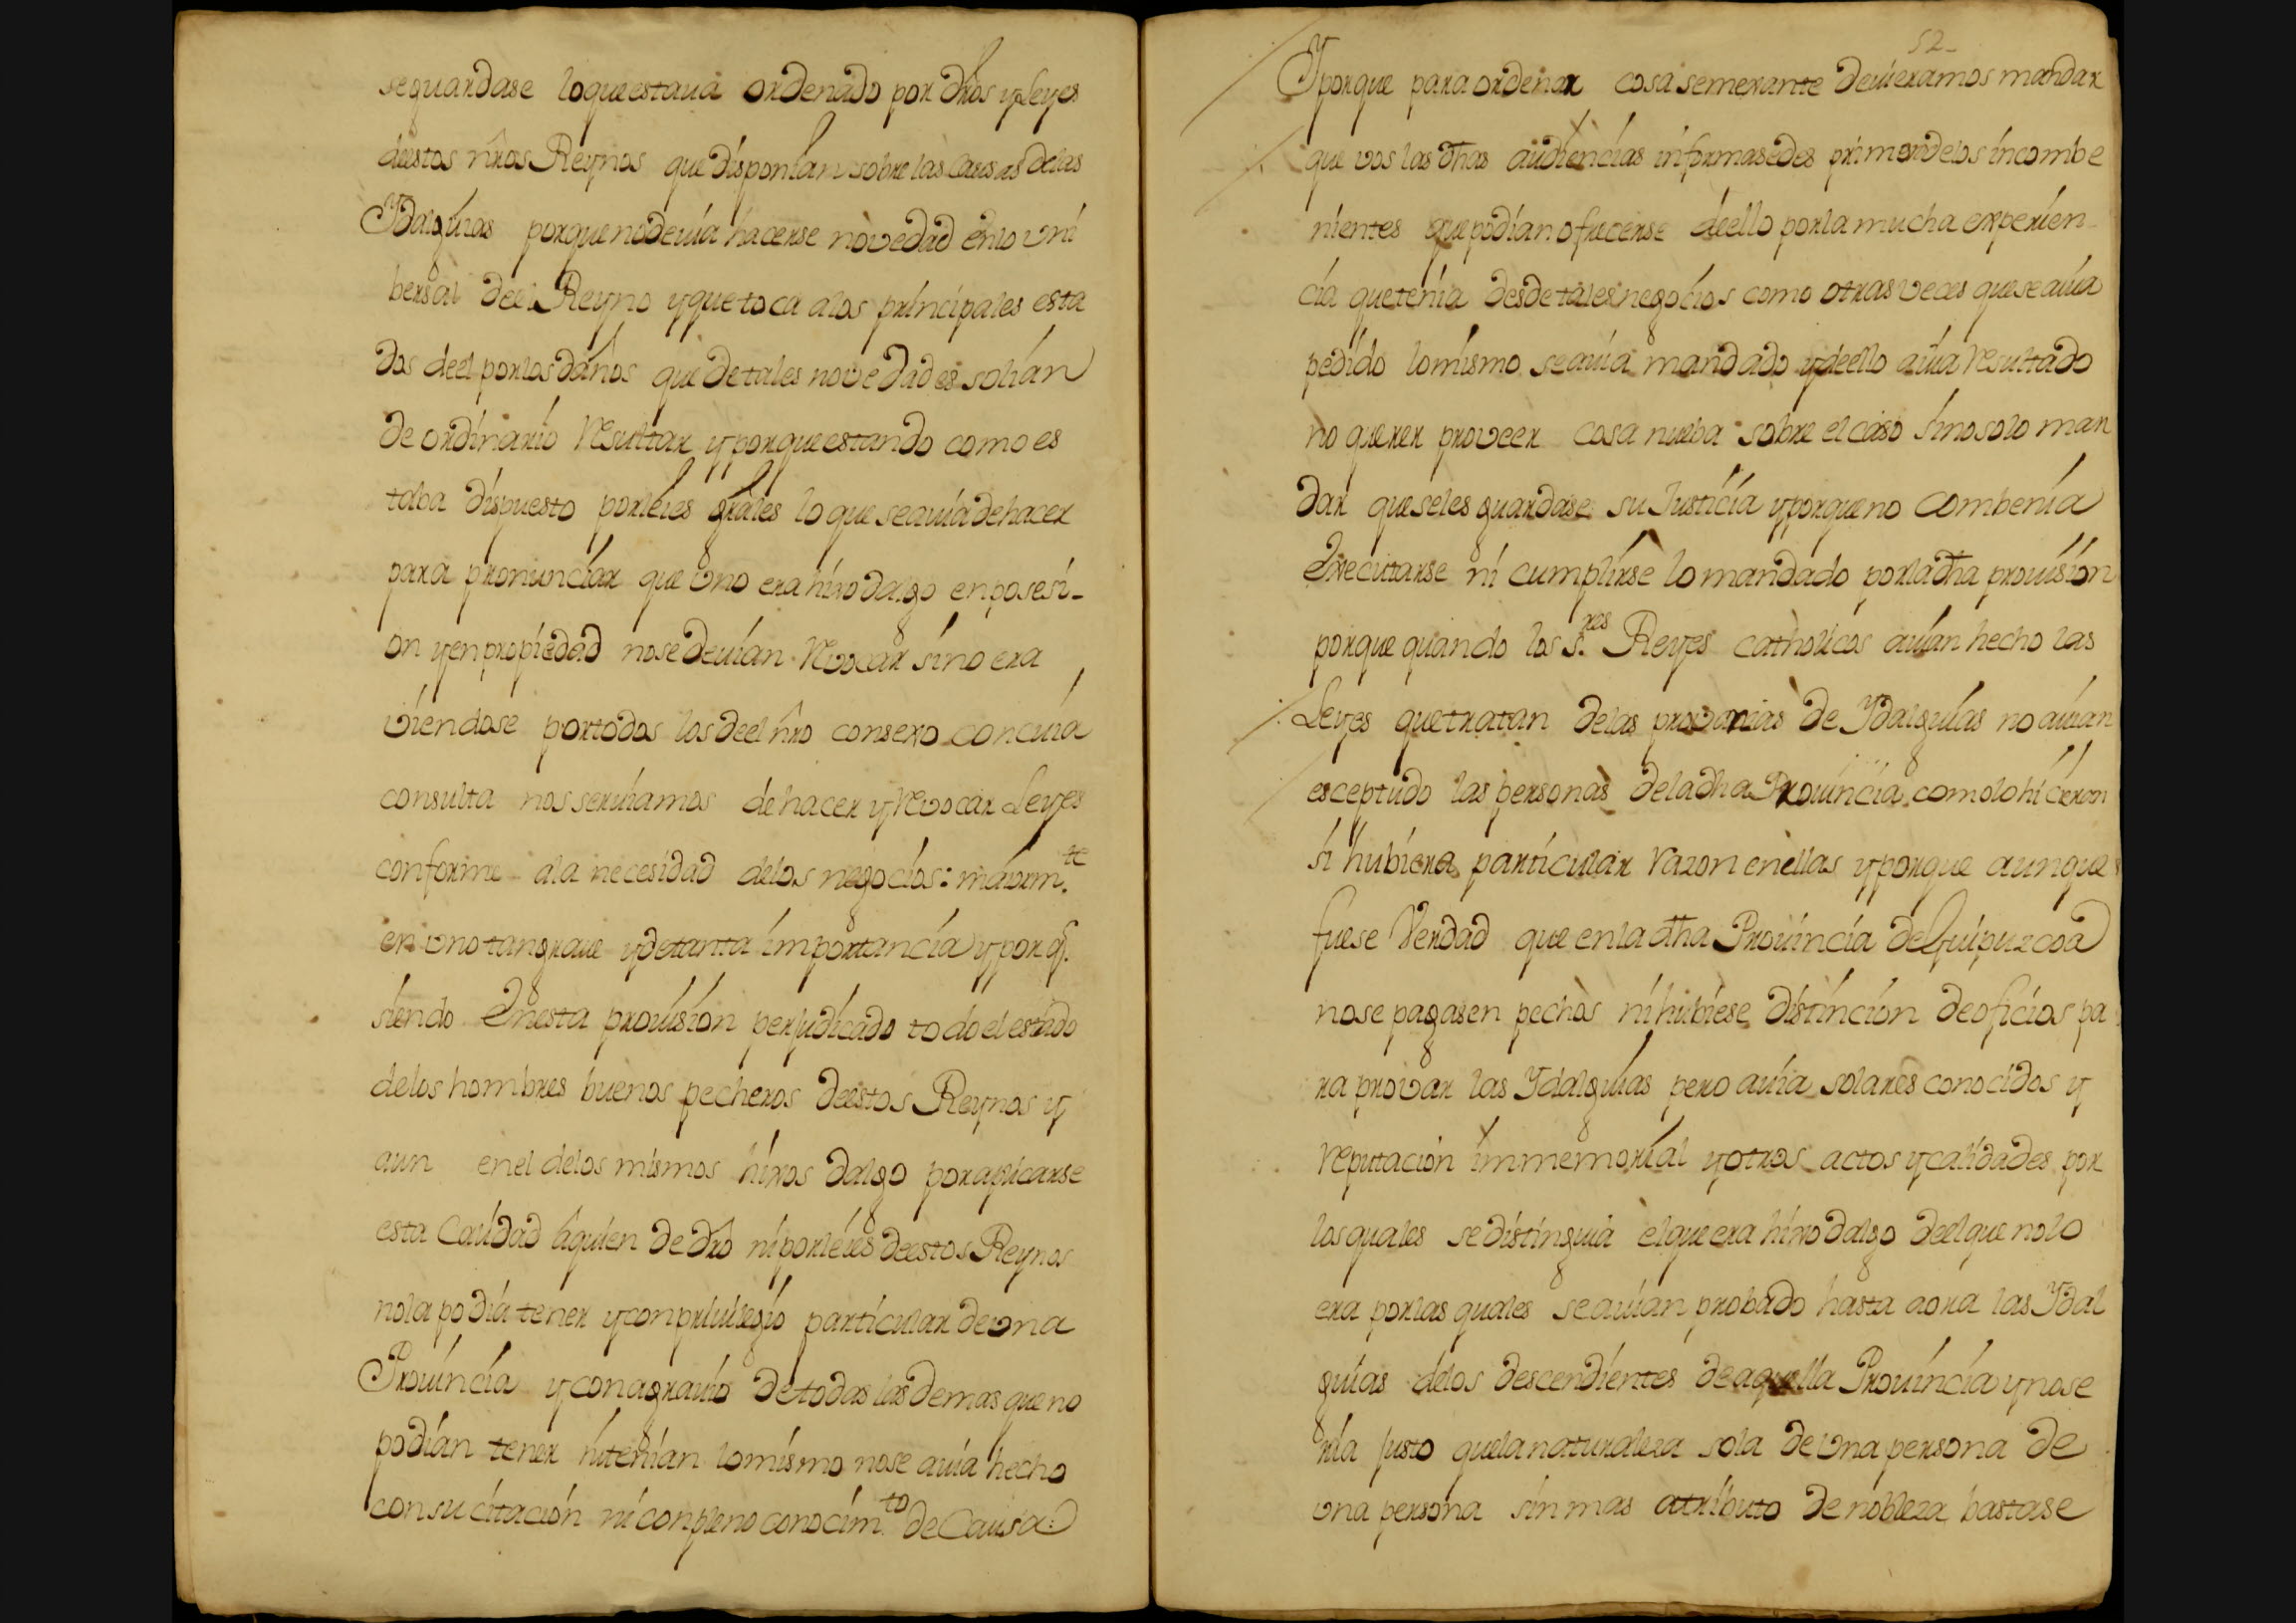 seguardase loqueestaua ordenado por dr̃os yLeyes
deestos nr̃os Reynos que disponian sobre las causas delas
Ydalguias porque nodeuia hacerse novedad enlo vni
bersal deel Reyno yquetoca alos principales esta
dos deel porlosdaños que detales novedades solian
de ordinario resultar yporqueestando como es
taba dispuesto porleies gr̃ales lo que seauiadehacer
para pronunciar que vno era hixodalgo enposesi-
on yenpropiedad nosedeuian revocar sino era
viendose portodos losdeel nr̃o consexo concuia
consulta nosseruiamos dehacer yrevocar Leyes
conforme ala necesidad delos negocios: maiorm.te
en vno tangraue ydetanta importancia yporq̃.
siendo Enesta prouision perjudicado todoelestado
delos hombres buenos pecheros deestos Reynos y
aun enel delos mismos hixos dalgo poraplicarse
esta calidad âquien de dr̃o niporleies deestos Reynos
nola podia tener yconpriuilegio particular devna
Prouincia yconagrauio detodas lasdemas que no
podian tener nitenian lomismo nose auia hecho
consu citacion niconpleno conocim.to de Causa:
52-
Yporque para ordenar cosa semexante deuieramos mandar
que vos las dhas audiencias informasedes primero delos incombe
nientes que podian ofrecerse deello porla mucha experien
cia quetenia desdetales negocios como otras veces queseauia
pedido lomismo seauia mandado ydeello auia resultado
no querer proveer cosa nueba sobre el caso sinosolo man
dar queseles guardase su Justicia yporqueno combenia
Executarse ni cumplirse lo mandado porladha prouision
porque quando los s.res Reyes catholicos auian hecho las
Leyes quetratan delas provancias de Ydalguias no auian
esceptudo las personas deladha Prouincia comolohicieron
si hubiera particular razon enellas yporque aunque
fuese Verdad que enla dha Prouincia deGuipuzcoa
nose pagasen pechos nihubiese distincion deoficios pa
ra provar las Ydalguias pero auia solares conocidos y
reputacion immemorial yotros actos ycalidades por
losquales sedistinguia elqueera hixodalgo deelque nolo
era porlas quales seauian probado hasta aora las Ydal
guias delos descendientes deaquella Prouincia ynose
ria justo quelanaturaleza sola devna persona de
vna persona sin mas atributo denobleza bastase